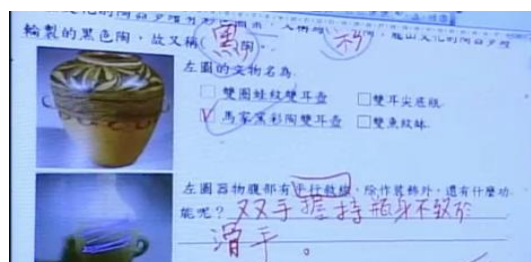 輪製的黑色陶，故又稱(黑)陶。
左圖的文物名為
□ 雙圈蛙紋雙耳壺 □雙耳尖底瓶
V 馬家窯彩陶雙耳壺 □雙魚紋缽
左圖器物腹部有平行敲線，除作裝飾外，還有什麼功
能呢？双手握持瓶身不致於
滑手。